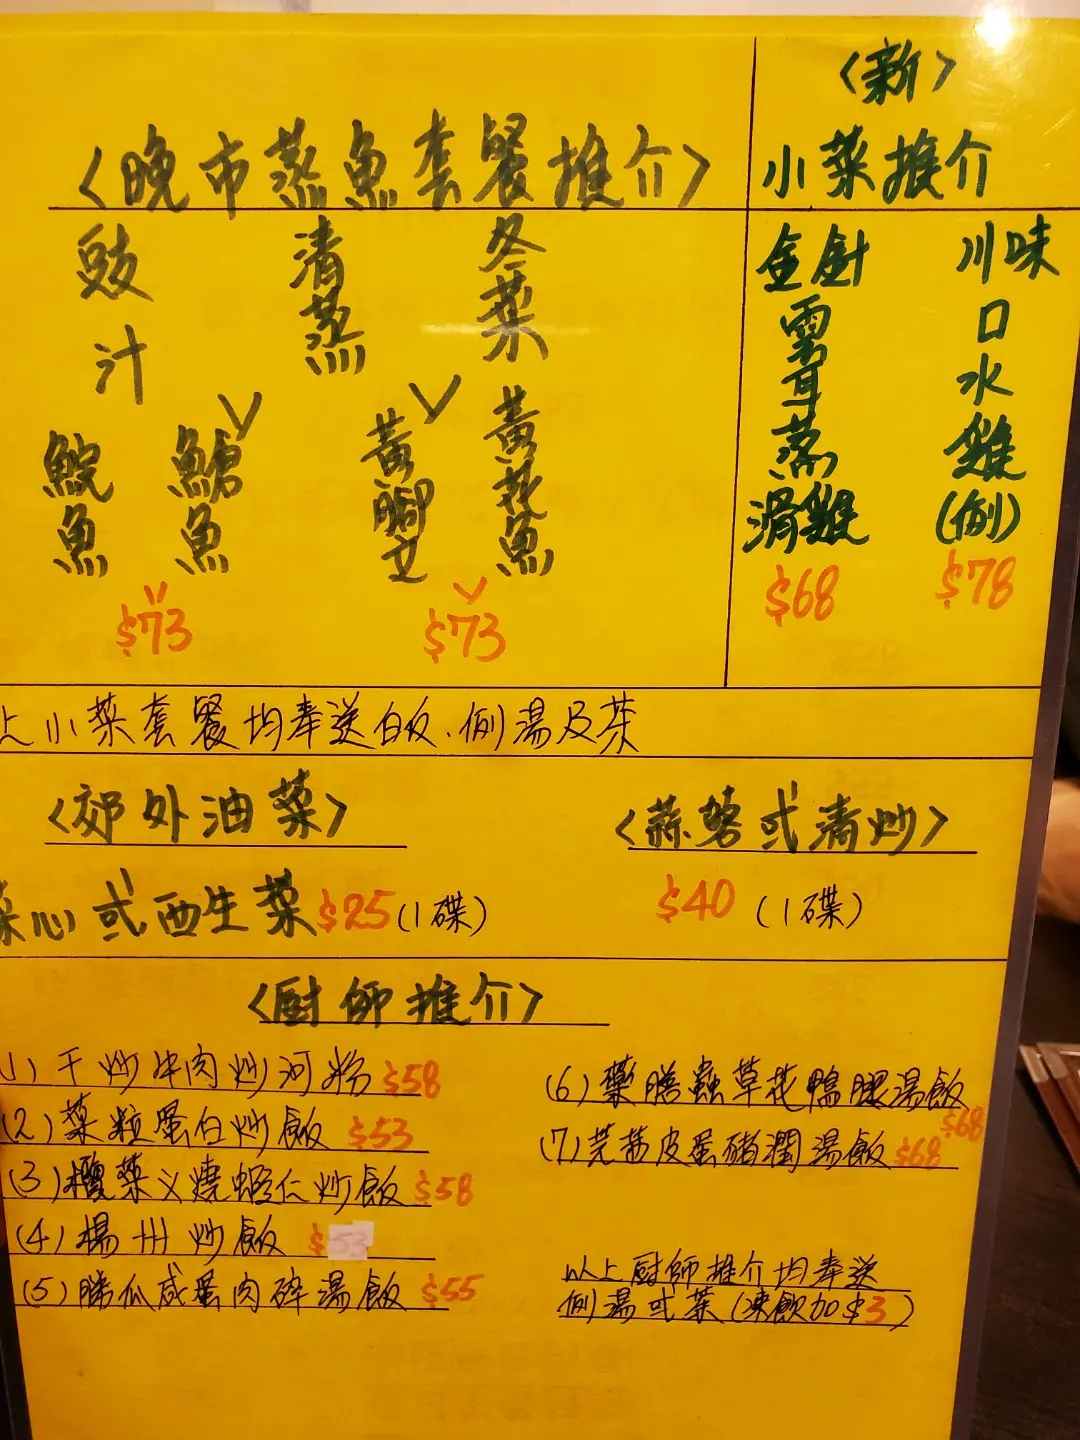 〈晚市蒸魚套餐推介〉
豉汁
鯇魚
鯧魚
$73
清蒸
冬菜
黃腳立
黃花魚
$73
〈新〉
小菜推介
金針雲耳蒸滑雞
$68
川味口水雞(例)
$78
上小菜套餐均奉送白飯、例湯及茶
〈郊外油菜〉
菜心或西生菜$25(1碟)
〈蒜蓉或清炒〉
$40 (1碟)
〈厨師推介〉
(1)干炒牛肉炒河粉 $58
(2)菜粒蛋白炒飯 $53
(3)欖菜义燒蝦仁炒飯 $58
(4)揚州炒飯 $53
(5)勝瓜咸蛋肉碎湯飯 $55
(6)藥膳蟲草花鴨腿湯飯 $68
(7)芫茜皮蛋豬潤湯飯 $68
以上厨師推介均奉送
例湯或茶(凍飲加$3)